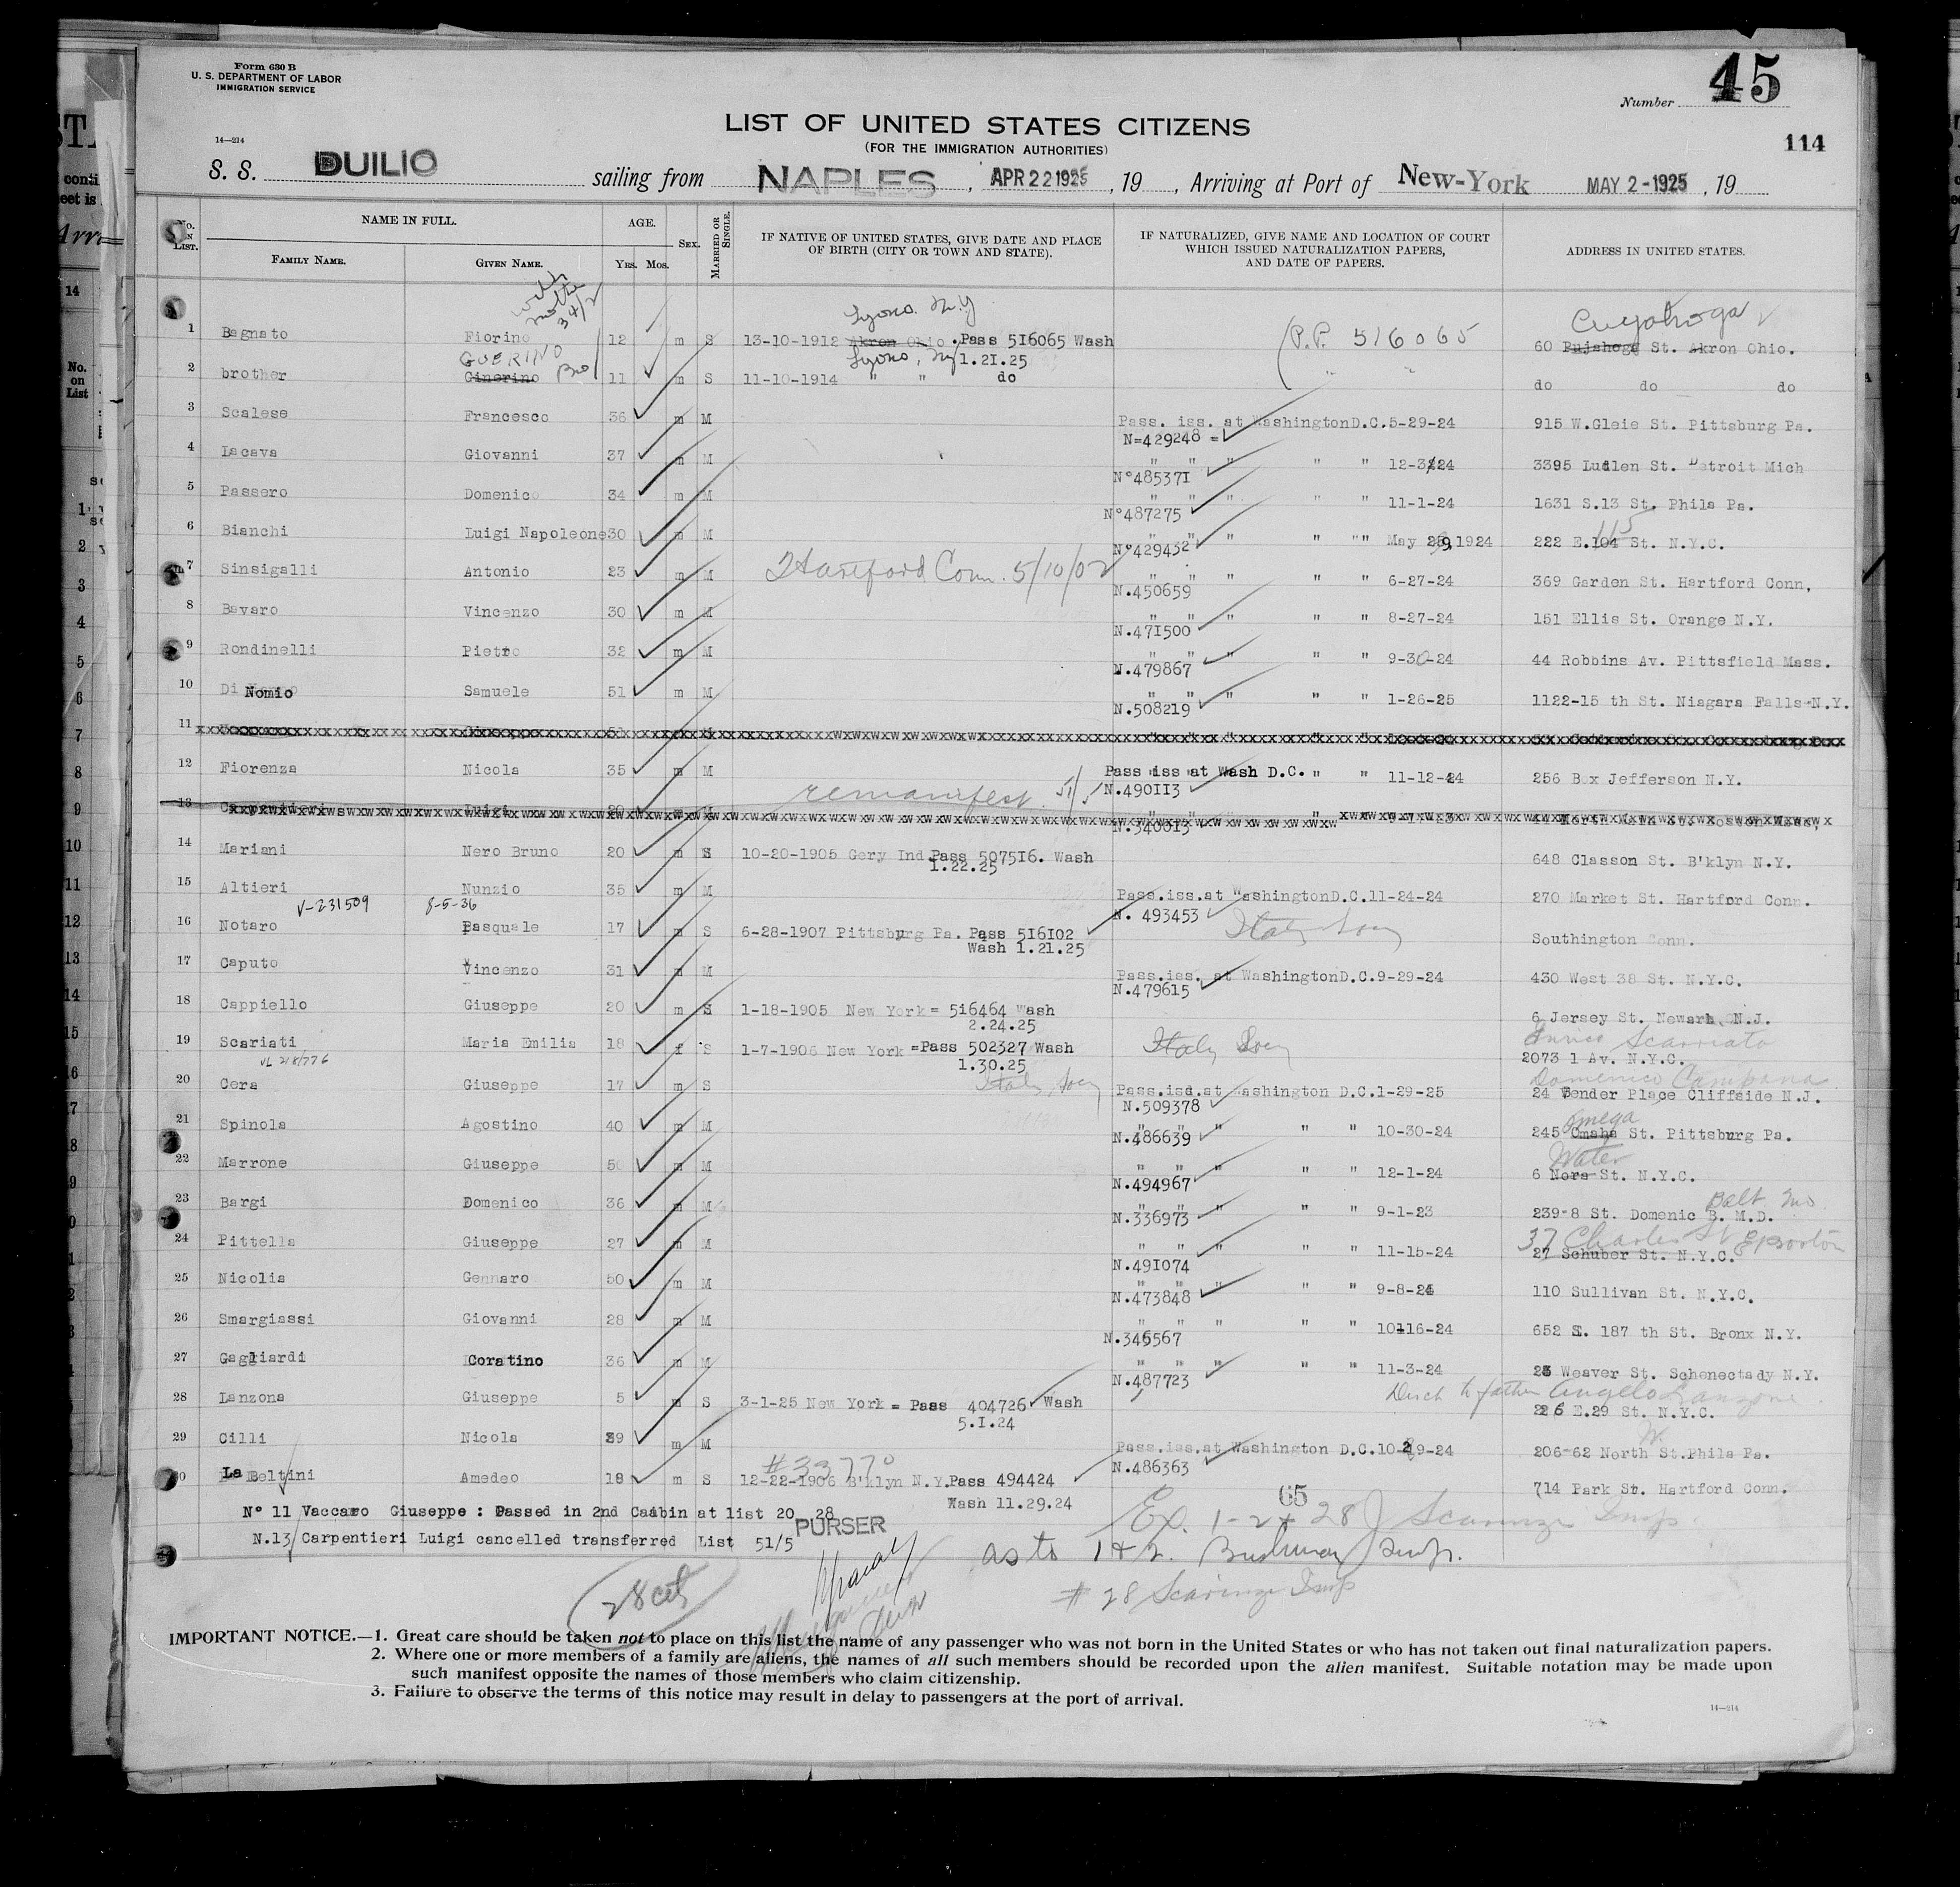 Form 630 B
U. S. DEPARTMENT OF LABOR
IMMIGRATION SERVICE
14—214
Number 45
114
LIST OF UNITED STATES CITIZENS
(FOR THE IMMIGRATION AUTHORITIES)
S. S. DUILIO sailing from NAPLES, APR 22 1925, 19 , Arriving at Port of New-York MAY 2-1925, 19
No. on List. NAME IN FULL. AGE. Sex. Married or Single. IF NATIVE OF UNITED STATES, GIVE DATE AND PLACE OF BIRTH (CITY OR TOWN AND STATE). IF NATURALIZED, GIVE NAME AND LOCATION OF COURT WHICH ISSUED NATURALIZATION PAPERS, AND DATE OF PAPERS. ADDRESS IN UNITED STATES.
Family Name. Given Name. Yrs. Mos.
with mother 34/2 Lyons. N.Y Cuyahoga
1 Bagnato Fiorino 12 m S 13-10-1912 Akron Ohio .Pass 516065 Wash (P.P. 516065 60 St. Akron Ohio.
GUERINO Bro Lyons, Ny 1.21.25
2 brother Ginerino 11 m S 11-10-1914 " " do " " do do do
3 Scalese Francesco 36 m M Pass. iss. at Washington D.C. 5-29-24 915 W.Gleie St. Pittsburg Pa.
N=429248 =
4 Lacava Giovanni 37 m M " " " " " 12-3-24 3395 Ludlen St. Detroit Mich
N°485371
5 Passero Domenico 34 m M " " " " " 11-1-24 1631 S.13 St. Phila Pa.
N°487275
6 Bianchi Luigi Napoleone 30 m M " " " " " May 29, 1924 222 E.104 St. N.Y.C. 115
N°429432
7 Sinsigalli Antonio 23 m M Hartford Conn. 5/10/02 " " " " " 6-27-24 369 Garden St. Hartford Conn,
N.450659
8 Bavaro Vincenzo 30 m M " " " " " 8-27-24 151 Ellis St. Orange N.Y.
N.471500
9 Rondinelli Pietro 32 m M " " " " " 9-30-24 44 Robbins Av. Pittsfield Mass.
N.479867
10 Di Nomio Samuele 51 m M " " " " " 1-26-25 1122-15 th St. Niagara Falls-N.Y.
N.508219
11
12 Fiorenza Nicola 35 m M Pass iss at Wash D.C. " " 11-12-24 256 Box Jefferson N.Y.
remanifest 51/5 N.490113
13 Carpentieri Luigi 20 m
N.340013
14 Mariani Nero Bruno 20 m S 10-20-1905 Gery Ind Pass 507516. Wash 648 Classon St. B'klyn N.Y.
1.22.25
15 Altieri Nunzio 35 m M Pass.iss.at Washington D.C. 11-24-24 270 Market St. Hartford Conn.
V-231509 8-5-36 N. 493453
16 Notaro Pasquale 17 m S 6-28-1907 Pittsburg Pa. Pass 516102 Southington Conn.
Wash 1.21.25
17 Caputo Vincenzo 31 m M Pass.iss. at Washington D.C. 9-29-24 430 West 38 St. N.Y.C.
N.479615
18 Cappiello Giuseppe 20 m S 1-18-1905 New York = 516464 Wash 6 Jersey St. Newark N.J.
2.24.25
19 Scariati Maria Emilia 18 f S 1-7-1906 New York =Pass 502327 Wash Italy Scariato
1.30.25 2073 1 Av. N.Y.C.
Domenico Campana
20 Cera Giuseppe 17 m S Pass.isd.at Washington D.C. 1-29-25 24 Bender Place Cliffside N.J.
N.509378
21 Spinola Agostino 40 m M " " " " " 10-30-24 245 Omaha St. Pittsburg Pa. Omega
N.486639
22 Marrone Giuseppe 50 m M " " " " " 12-1-24 6 Nora St. N.Y.C. Water
N.494967
23 Bargi Domenico 36 m M " " " " " 9-1-23 239-8 St. Domenic B. M.D. Balt Md
N.336973
24 Pittella Giuseppe 27 m M " " " " " 11-15-24 27 Schuber St. N.Y.C. 37 Charles St E Boston
N.491074
25 Nicolia Gennaro 50 m M " " " " " 9-8-24 110 Sullivan St. N.Y.C.
N.473848
26 Smargiassi Giovanni 28 m M " " " " " 10-16-24 652 E. 187 th St. Bronx N.Y.
N.346567
27 Gagliardi Coratino 36 m M " " " " " 11-3-24 23 Weaver St. Schenectady N.Y.
N.487723
Disch to father Angelo Lanzone
28 Lanzona Giuseppe 5 m S 3-1-25 New York = Pass 404726 Wash 226 E.29 St. N.Y.C.
5.1.24
29 Cilli Nicola 39 m M Pass.iss.at Washington D.C. 10-29-24 206-62 North St.Phila Pa.
#33770 N.486363
30 La Beltini Amedeo 18 m S 12-22-1906 B'klyn N.Y. Pass 494424 714 Park St. Hartford Conn.
Wash 11.29.24
N° 11 Vaccaro Giuseppe : Passed in 2nd Cabin at list 20 28
N.13 Carpentieri Luigi cancelled transferred List 51/5
PURSER
65
Ex. 1-2 + 28 J Scarinzi Insp.
as to 1 & 2. Bushway Insp.
# 28 Scarinzi Insp
28 cit
IMPORTANT NOTICE.—1. Great care should be taken not to place on this list the name of any passenger who was not born in the United States or who has not taken out final naturalization papers.
2. Where one or more members of a family are aliens, the names of all such members should be recorded upon the alien manifest. Suitable notation may be made upon
such manifest opposite the names of those members who claim citizenship.
3. Failure to observe the terms of this notice may result in delay to passengers at the port of arrival.
14—214